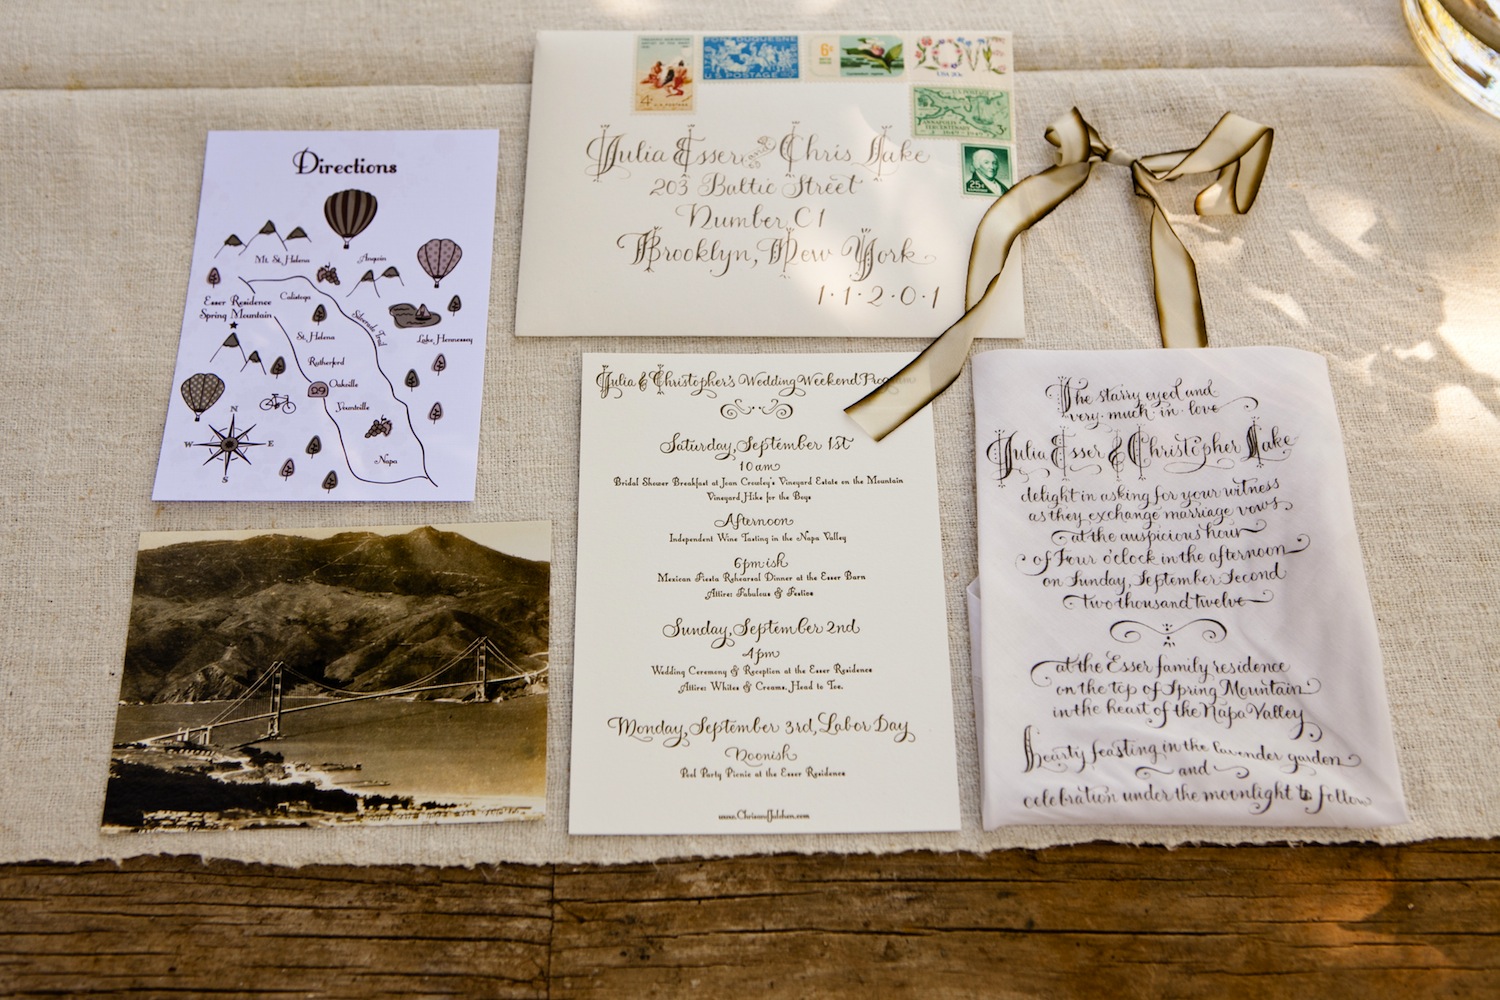 Directions
Mt. St. Helena
Angwin
Esser Residence
Spring Mountain
Calistoga
Silverado Trail
Lake Hennessey
St. Helena
Rutherford
Oakville
29
Yountville
Napa
N
W
E
S
4¢
U.S. POSTAGE
FORT DUQUESNE
U.S. POSTAGE
6¢
LOVE
USA 20c
U.S. POSTAGE
ANNAPOLIS
TERCENTENARY
3¢
25¢
Julia Esser & Chris Lake
203 Baltic Street
Number C1
Brooklyn, New York
1·1·2·0·1
Julia & Christopher's Wedding Weekend Program
Saturday, September 1st
10am
Bridal Shower Breakfast at Joan Crowley's Vineyard Estate on the Mountain
Vineyard Hike for the Boys
Afternoon
Independent Wine Tasting in the Napa Valley
6pmish
Mexican Fiesta Rehearsal Dinner at the Esser Barn
Attire: Fabulous & Festive
Sunday, September 2nd
4pm
Wedding Ceremony & Reception at the Esser Residence
Attire: Whites & Creams, Head to Toe.
Monday, September 3rd, Labor Day
Noonish
Pool Party Picnic at the Esser Residence
The starry eyed and
very·much·in·love
Julia Esser & Christopher Lake
delight in asking for your witness
as they exchange marriage vows
at the auspicious hour
of Four o'clock in the afternoon
on Sunday, September Second
two thousand twelve
at the Esser family residence
on the top of Spring Mountain
in the heart of the Napa Valley
hearty feasting in the lavender garden
and
celebration under the moonlight to follow